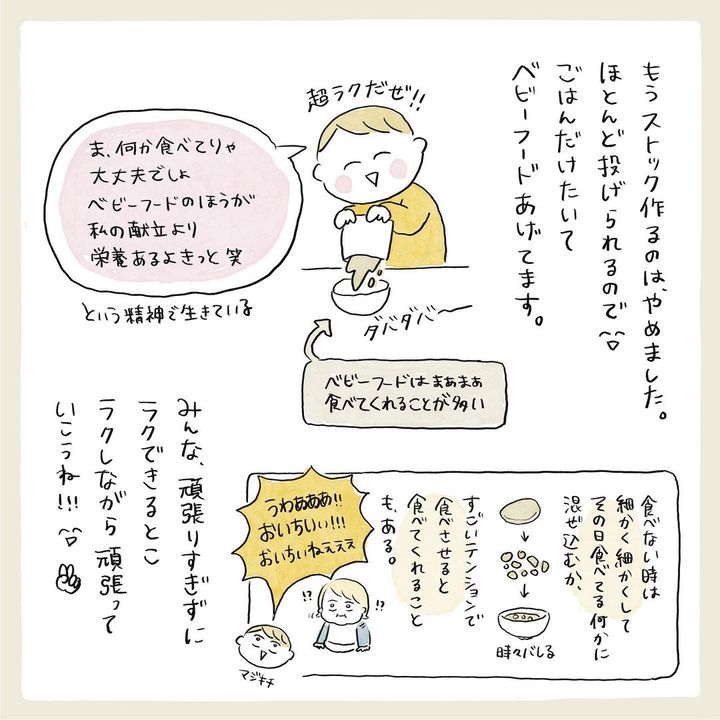 もうストック作るのは、やめました。
ほとんど投げられるので
ごはんだけたいて
ベビーフードあげてます。
超ラクだぜ!!
ま、何か食べてりゃ
大丈夫でしょ
ベビーフードのほうが
私の献立より
栄養あるよきっと笑
という精神で生きている
ダバダバー
ベビーフードはまぁまぁ
食べてくれることが多い
食べない時は
細かく細かくして
その日食べてる何かに
混ぜ込むか、
時々バレる
すごいテンションで
食べさせると
食べてくれること
も、ある。
うわぁぁぁぁ!!
おいちいぃ!!!
おいちいねぇぇぇ
!?
!?
マジキメ
みんな、頑張りすぎずに
ラクできるとこ
ラクしながら頑張って
いこうね!!!